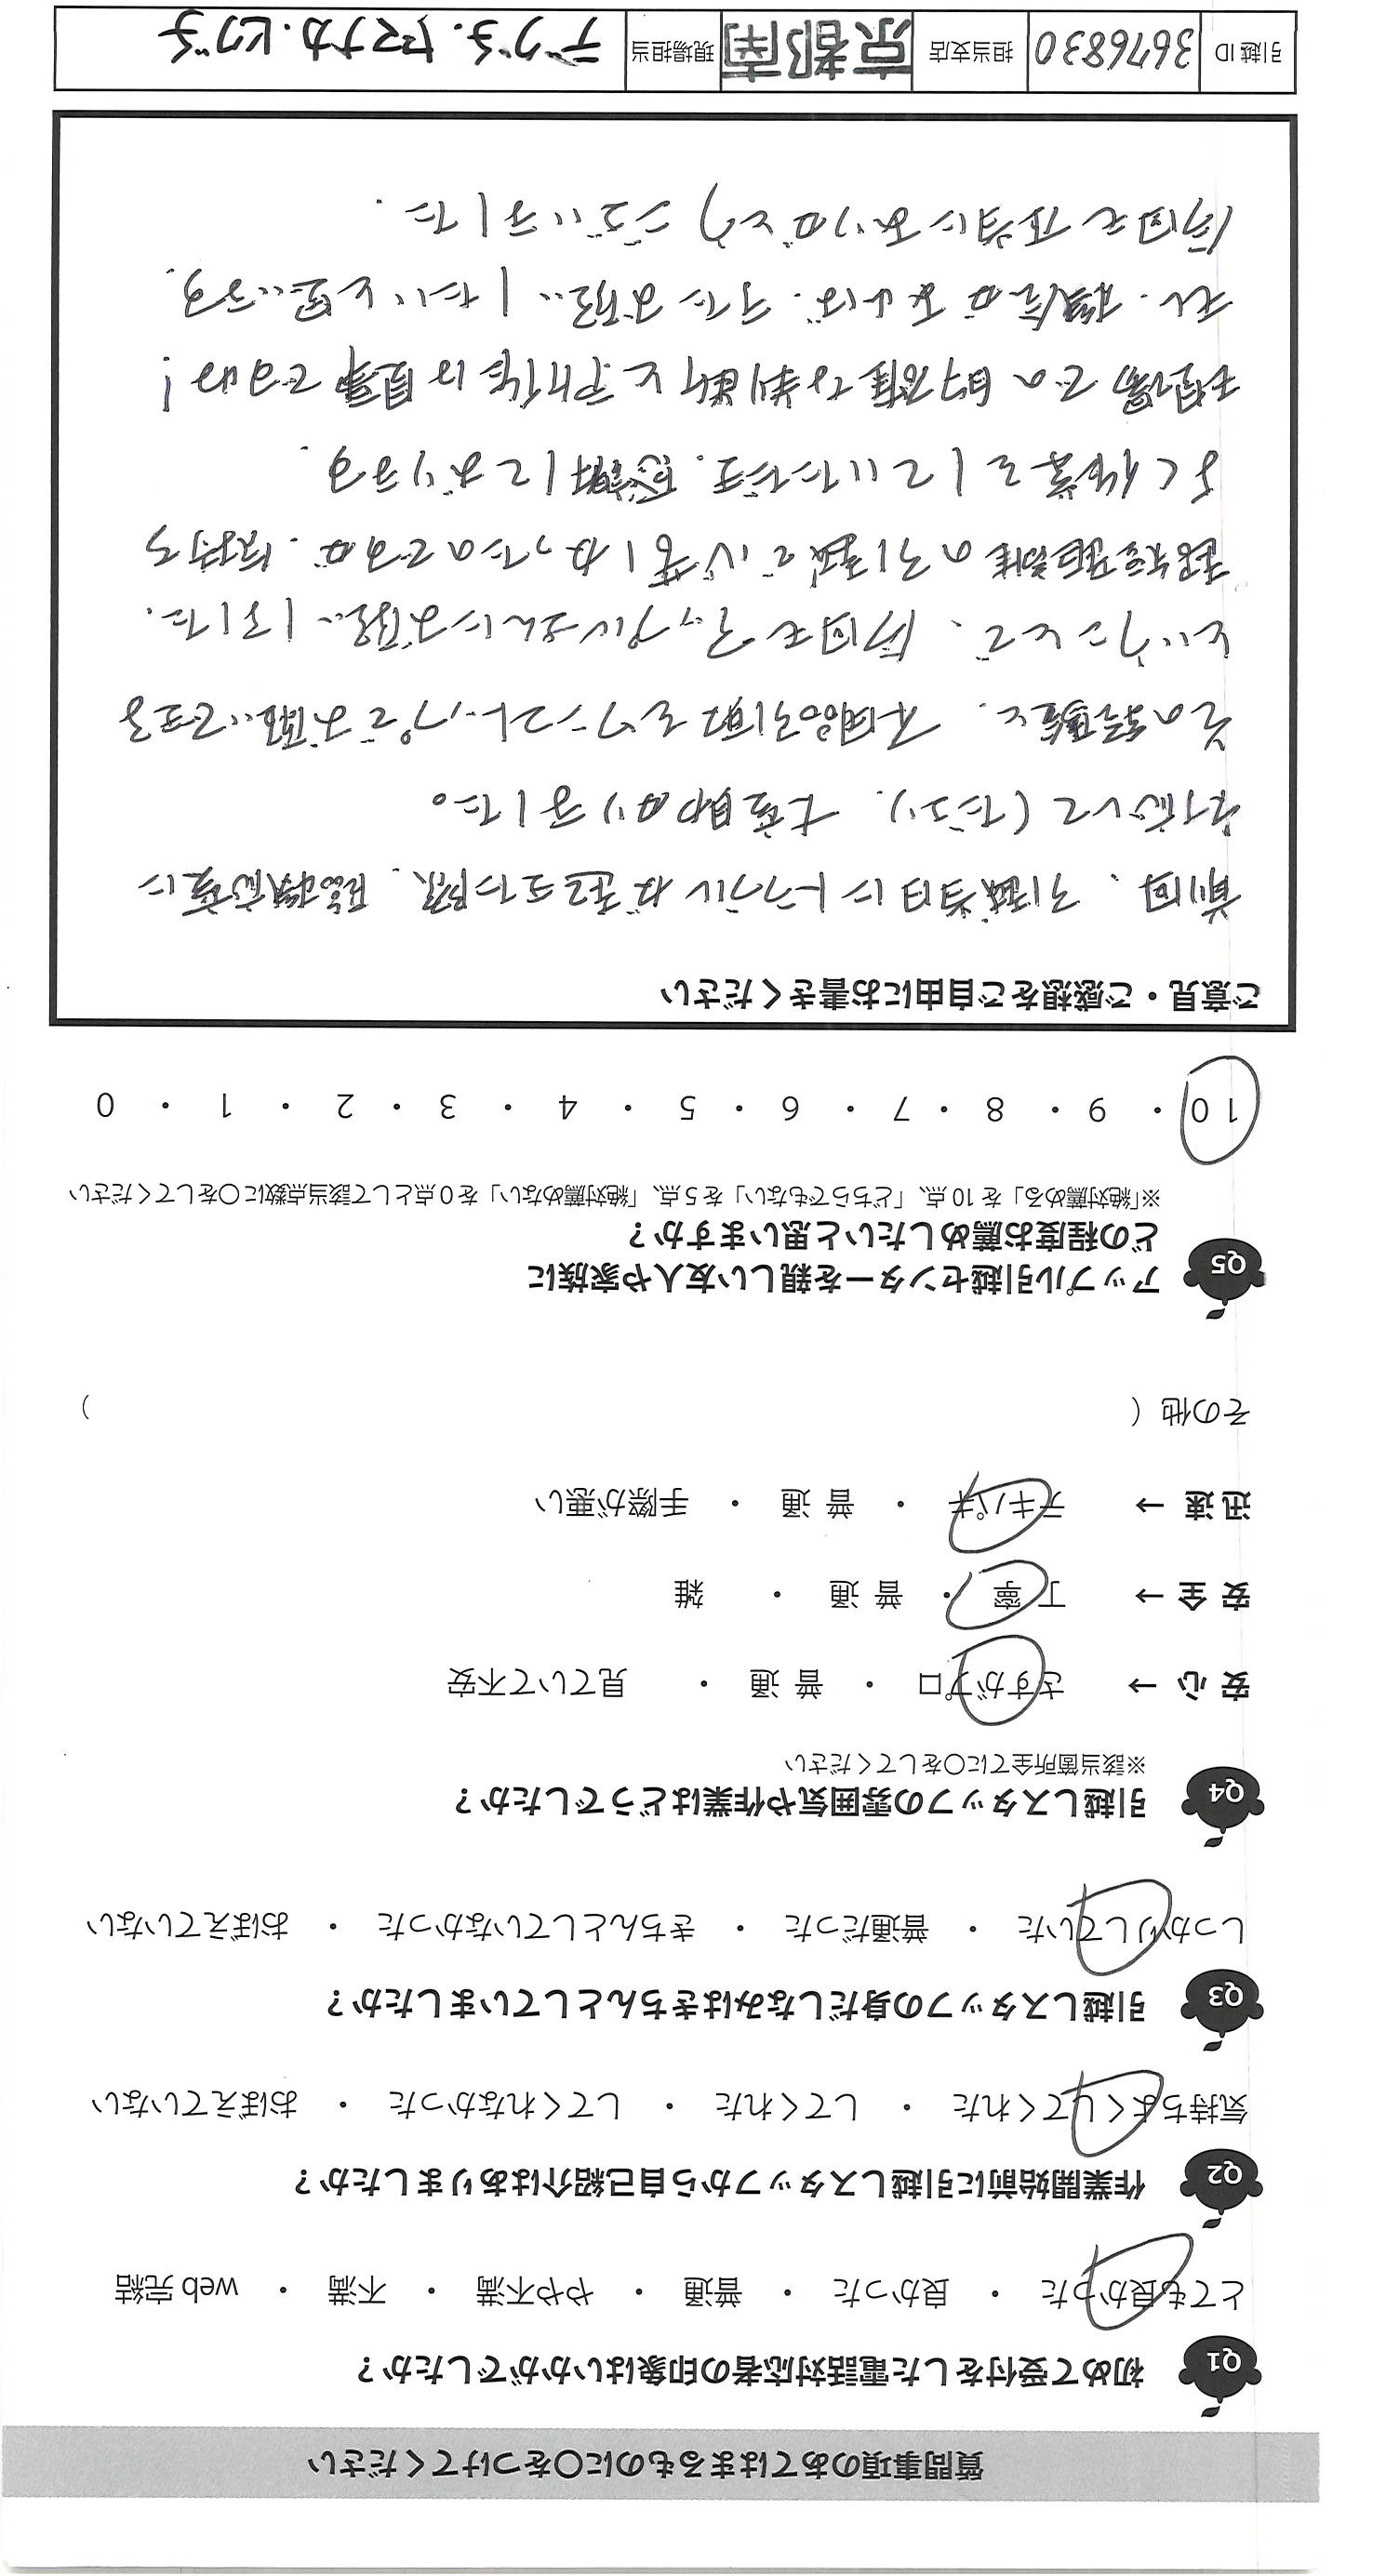 質問事項のあてはまるものに○をつけてください
Q1 初めて受付をした電話対応者の印象はいかがでしたか？
とても良かった ・ 良かった ・ 普通 ・ やや不満 ・ 不満 ・ web 完結
Q2 作業開始前に引越しスタッフから自己紹介はありましたか？
気持ちよくしてくれた ・ してくれた ・ してくれなかった ・ おぼえていない
Q3 引越しスタッフの身だしなみはきちんとしていましたか？
しっかりしていた ・ 普通だった ・ きちんとしていなかった ・ おぼえていない
Q4 引越しスタッフの雰囲気や作業はどうでしたか？
※該当箇所全てに○をしてください
安 心 → さすがプロ ・ 普 通 ・ 見ていて不安
安 全 → 丁 寧 ・ 普 通 ・ 雑
迅 速 → テキパキ ・ 普 通 ・ 手際が悪い
その他（ ）
Q5 アップル引越センターを親しい友人や家族に
どの程度お薦めしたいと思いますか？
※「絶対薦める」を 10 点、「どちらでもない」を 5 点、「絶対薦めない」を 0 点として該当点数に○をしてください
10 ・ 9 ・ 8 ・ 7 ・ 6 ・ 5 ・ 4 ・ 3 ・ 2 ・ 1 ・ 0
ご意見・ご感想をご自由にお書きください
前回、引越当日にトラブルが起きた際、臨機応変に
対応して（ださり、大変助かりました。
その経験と、不用品引取をワンストップでお願いできる
ということで、今回もアップルさんにお願いしました。
超短距離の引越で心苦しかったのですが、気持ち
よく作業をしていただき、感謝しております。
現場での的確な判断と所作は見事ですね！
又、機会があれば、またお願いしたいと思います。
今回も本当にありがとうございました．
引越 ID 3676830 担当支店 京都南 現場担当 デグチ．ヤマナカ．ヒグチ